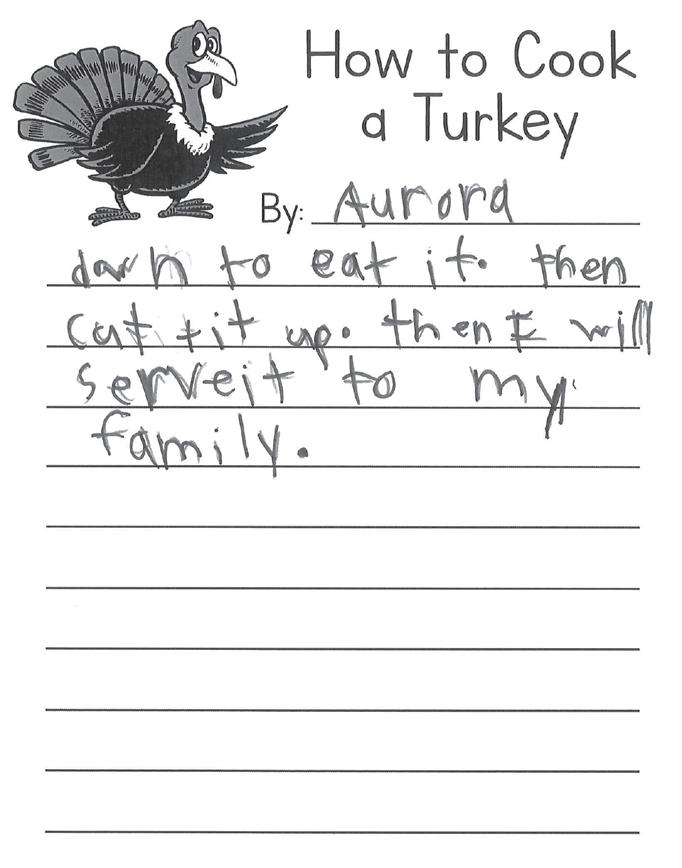 How to Cook
a Turkey
By: Aurora
down to eat it. then
cut tit up. then I will
serveit to my
family.